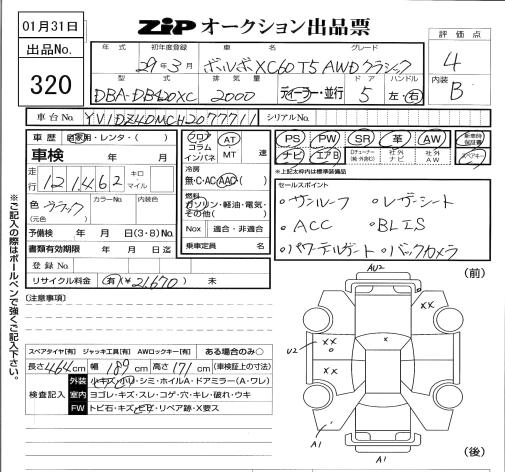 01月31日
出品No.
320
ZiP オークション出品票
評価点
4
内装
B
年式 初年度登録 車名 グレード
29年3月 ボルボXC60 T5 AWD クラシック
型式 排気量 ドア ハンドル
DBA-DB420XC 2000 ディーラー・並行 5 左・右
車台No. YV1DZ40MCH2077711 シリアルNo.
車歴 自家用・レンタ・( )
車検 年 月
走行 121,462 キロ マイル
色 ブラック (元色) カラーNo. 内装色
予備検 年 月 日(3・8)No.
書類有効期限 年 月 日迄
登録No.
リサイクル料金 有(¥21,670) 未
フロア コラム インパネ
AT MT 速
冷房 無・C・AC・AAC
燃料 ガソリン・軽油・電気・その他( )
Nox 適合・非適合
乗車定員 名
PS PW SR 革 AW 新車時保証書
ナビ エアB Dチューナー(純・外含む) 社外ナビ 社外AW スペアキー
*上記太枠内は標準装備品
セールスポイント
・サンルーフ ・レザーシート
・ACC ・BLIS
・パワーテールゲート ・バックカメラ
※ご記入の際はボールペンで強くご記入下さい。
(注意事項)
スペアタイヤ[有] ジャッキ工具[有] AWロックキー[有] ある場合のみ○
長さ464cm 幅189cm 高さ171cm (車検証上の寸法)
検査記入
外装 小キズ・小リ・シミ・ホイルA・ドアミラー(A・ワレ)
室内 ヨゴレ・キズ・スレ・コゲ・穴・キレ・破れ・ウキ
FW トビ石・キズ・ヒビ・リペア跡・X要ス
(前)
AU2
XX
U2
XX
x
XX
A1
A1
(後)